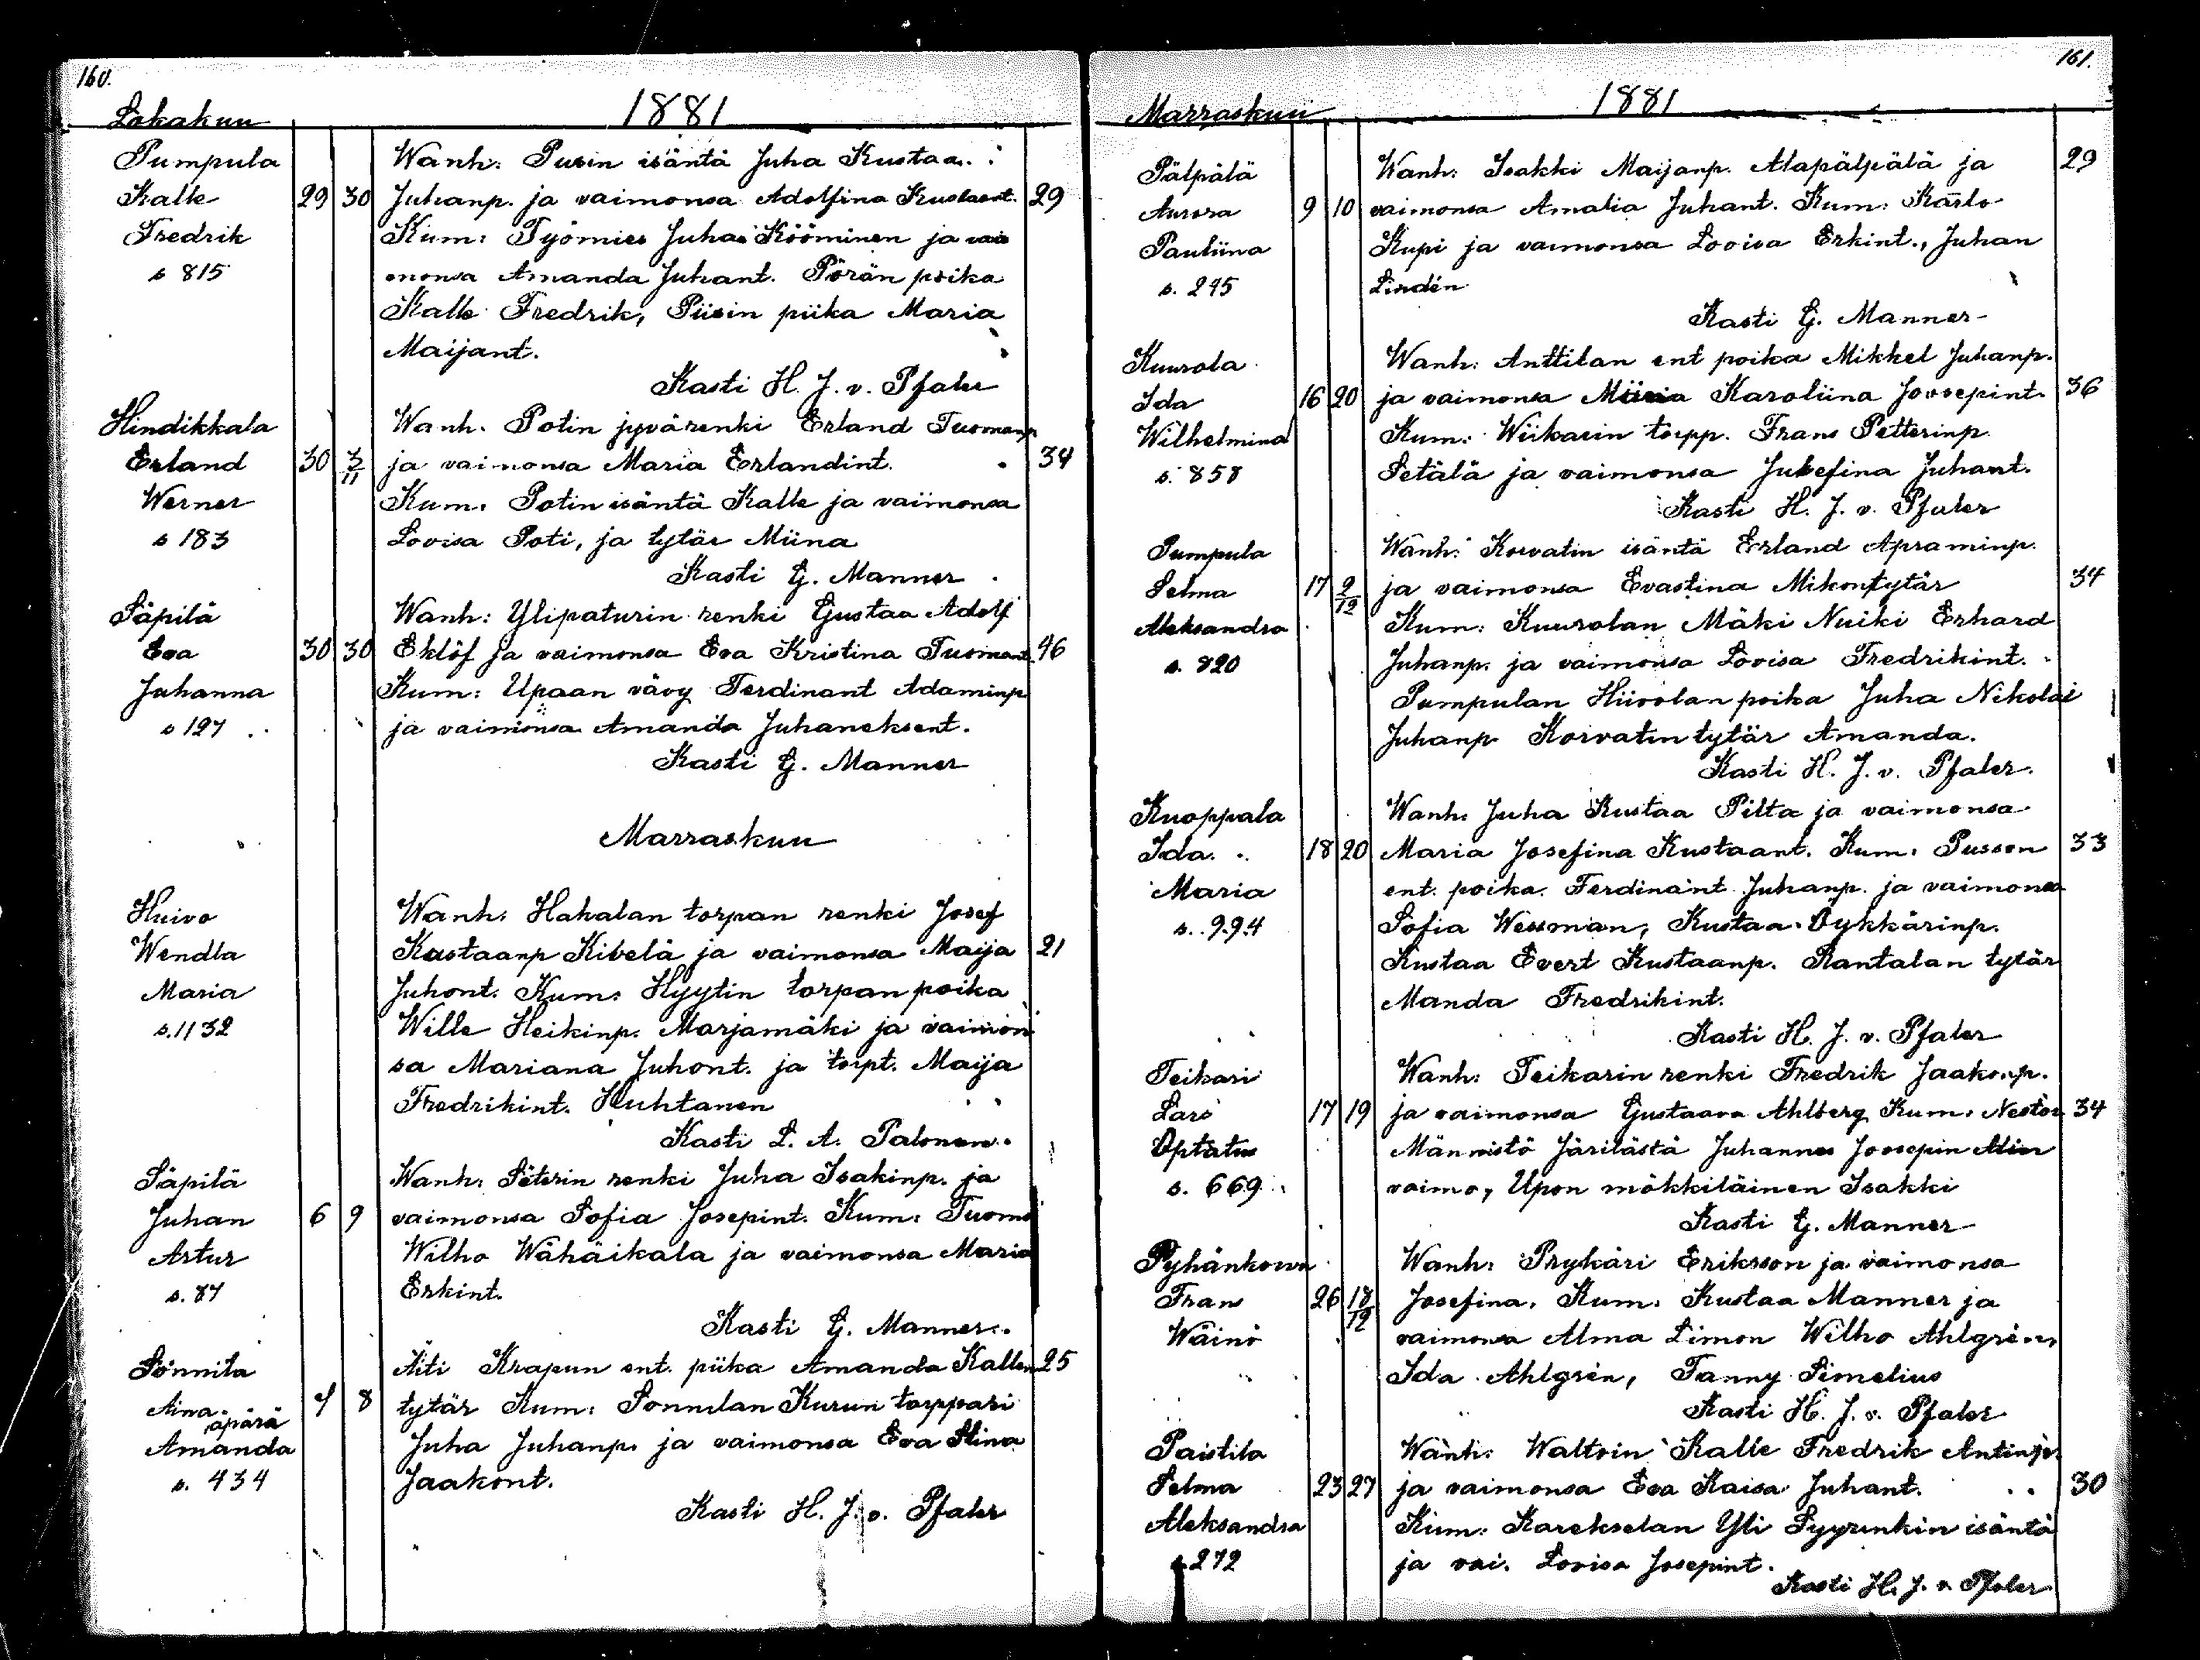 160.
Lokakuu 1881
Pumpula Wanh. Pusin isäntä Juha Kustaa
Kalle 29 30 Juhanp. ja vaimonsa Adolfina Kustaant. 29
Fredrik Kum: Työmies Juha Kööminen ja vai
s 815 monsa Amanda Juhant. Pörän poika
Kalle Fredrik, Piisin piika Maria
Maijant.
Kasti H. J. v. Pfaler
Hindikkala Wanh. Potin jyvärenki Erland Tuomanp
Erland 30 3/11 ja vaimonsa Maria Erlandint. 34
Werner Kum. Potin isäntä Kalle ja vaimonsa
s 183 Lovisa Poti, ja tytär Miina
Kasti G. Manner
Säpilä Wanh: Ylipaturin renki Gustaa Adolf
Eva 30 30 Eklöf ja vaimonsa Eva Kristina Tuomant. 46
Juhanna Kum: Upaan vävy Ferdinant Adaminp
s 127 ja vaimonsa Amanda Juhaneksent.
Kasti G. Manner
Marraskuu
Huivo Wanh: Hakalan torpan renki Josef
Wendla Kustaanp Kibelä ja vaimonsa Maija 21
Maria Juhont. Kum: Hyytin torpan poika
s. 1132 Wille Heikinp. Marjamäki ja vaimon
sa Mariana Juhont. ja torpt. Maija
Fredrikint. Huhtanen
Kasti L. A. Palonen.
Säpilä Wanh: Säterin renki Juha Isakinp. ja
Juhan 6 9 vaimonsa Sofia Josepint. Kum: Tuoms
Artur Wilho Wähäikala ja vaimonsa Maria
s. 87 Erkint.
Kasti G. Manner.
Sonnila Äiti Krapun ent. piika Amanda Kallen 25
Aina 7 8 tytär Kum: Sonnilan Kurun torppari
äpärä
Amanda Juha Juhanp. ja vaimonsa Eva Stina
s. 434 Jaakont.
Kasti H. J. v. Pfaler
161.
Marraskuu 1881
Pälpälä Wanh: Isakki Maijanp. Alapälpälä ja 29
Aurora 9 10 vaimonsa Amalia Juhant. Kum: Karlo
Pauliina Kupi ja vaimonsa Lovisa Erkint., Juhan
s. 295 Lindén
Kasti G. Manner
Kuurola Wanh: Anttilan ent poika Mikkel Juhanp.
Ida 16 20 ja vaimonsa Karoliina Joosepint. 36
Wilhelmina Kum: Wiikarin torpp. Frans Petterinp.
s. 858 Setälä ja vaimonsa Jusefina Juhant.
Kasti H. J. v. Pfaler
Pumpula Wanh: Korvatin isäntä Erland Apraminp.
Selma 17 2/12 ja vaimonsa Evastina Mikontytär 34
Aleksandra Kum: Kuurolan Mäki Nuiki Erhard
s. 820 Juhanp. ja vaimonsa Lovisa Fredrikint.
Pumpulan Hiirolan poika Juha Nikolai
Juhanp Korvatin tytär Amanda.
Kasti H. J. v. Pfaler.
Kuoppala Wanh: Juha Kustaa Pilta ja vaimonsa
Ida 18 20 Maria Josefina Kustaant. Kum: Pusson 33
Maria ent. poika Ferdinant Juhanp. ja vaimonsa
s. 994 Sofia Wessman, Kustaa Öykkärinp.
Kustaa Evert Kustaanp. Rantalan tytär
Manda Fredrikint.
Kasti H. J. v. Pfaler
Teikari Wanh: Teikarin renki Fredrik Jaakonp.
Lars 17 19 ja vaimonsa Gustaava Ahlberg Kum: Nestor 34
Optatus Männistö Järilästä Juhannes Joosepin
s. 669 vaimo, Upon mökkiläinen Isakki
Kasti G. Manner
Pyhänkorva Wanh: Prykäri Eriksson ja vaimonsa
Frans 26 18/12 Josefina. Kum: Kustaa Manner ja
Wäinö vaimonsa Alma Limon Wilho Ahlgrén,
Ida Ahlgrén, Fanny Simelius
Kasti H. J. v. Pfaler
Paistila Wanh: Waltoin Kalle Fredrik Antinp.
Selma 23 27 ja vaimonsa Eva Kaisa Juhant. 30
Aleksandra Kum: Karekselan Yli Syyrunkin isäntä
s 272 ja vai. Lovisa Josepint.
Kasti H. J. v. Pfaler